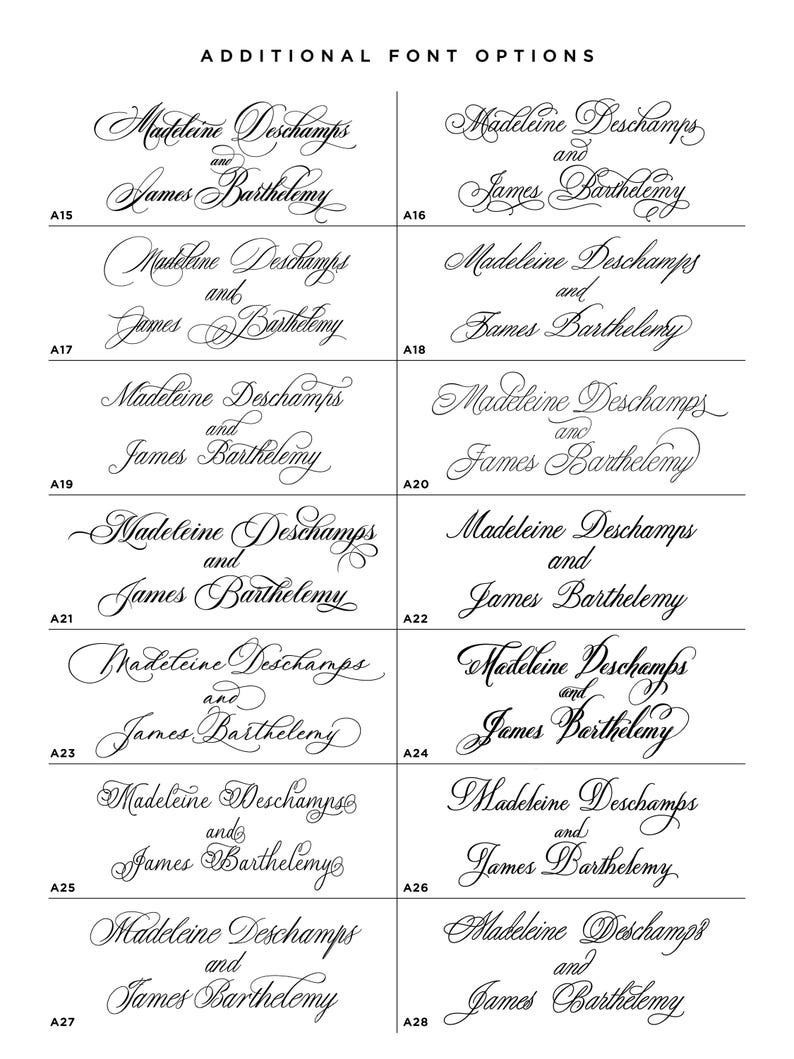 ADDITIONAL FONT OPTIONS
Madeleine Deschamps
and
James Barthelemy
A15
Madeleine Deschamps
and
James Barthelemy
A16
Madeleine Deschamps
and
James Barthelemy
A17
Madeleine Deschamps
and
James Barthelemy
A18
Madeleine Deschamps
and
James Barthelemy
A19
Madeleine Deschamps
and
James Barthelemy
A20
Madeleine Deschamps
and
James Barthelemy
A21
Madeleine Deschamps
and
James Barthelemy
A22
Madeleine Deschamps
and
James Barthelemy
A23
Madeleine Deschamps
and
James Barthelemy
A24
Madeleine Deschamps
and
James Barthelemy
A25
Madeleine Deschamps
and
James Barthelemy
A26
Madeleine Deschamps
and
James Barthelemy
A27
Madeleine Deschamps
and
James Barthelemy
A28